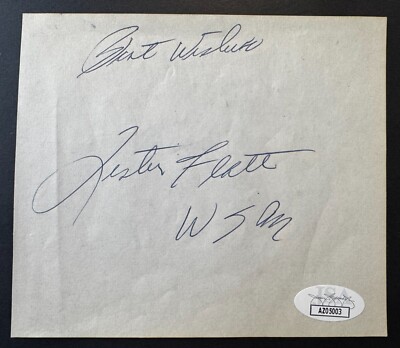 Best Wishes
Lester Flatt
WSM
JSA
AZ05003